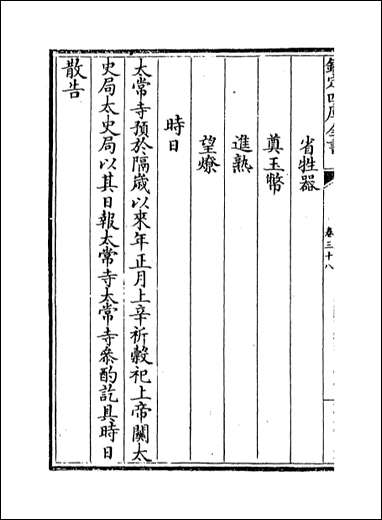 欽定四庫全書
卷三十八
省牲器
奠玉幣
進熟
望燎
時日
太常寺預於隔歲以來年正月上辛祈穀祀上帝關太
史局太史局以其日報太常寺太常寺參酌訖具時日
散告